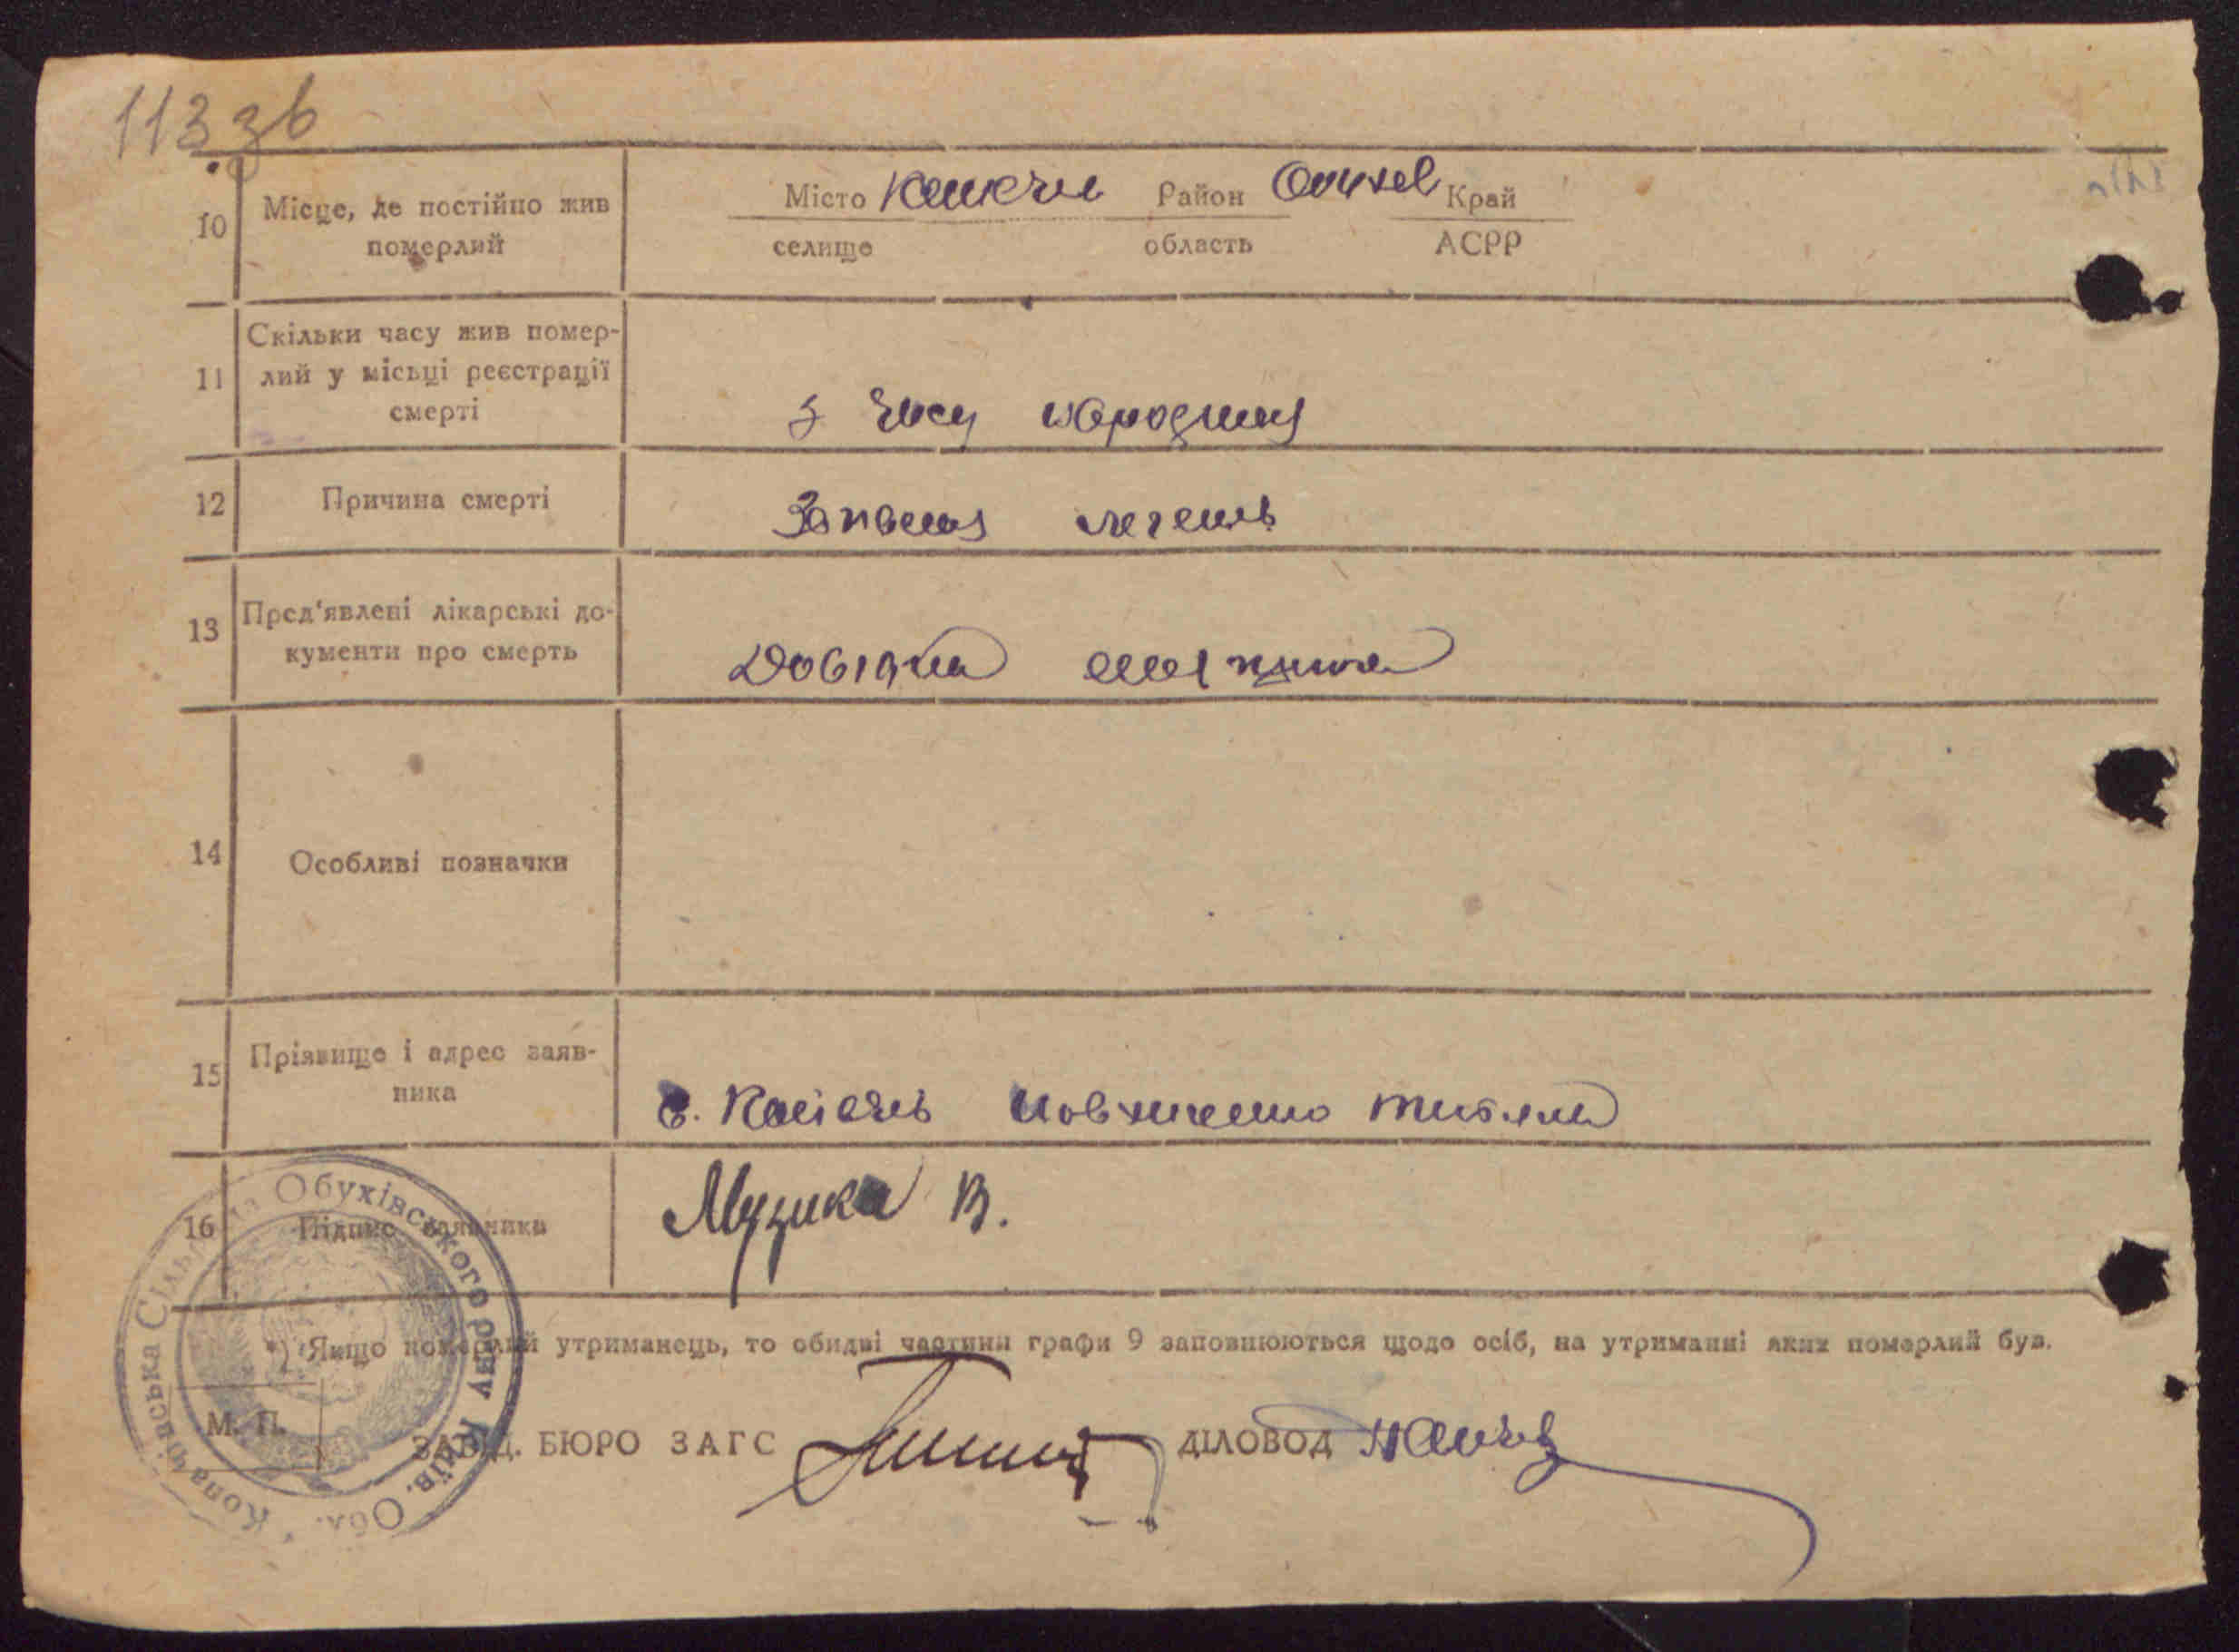 113 зв
10 Місце, де постійно жив померлий
Місто Район Край
селище область АСРР
11 Скільки часу жив помер-
лий у місьці реєстрації
смерті
з часу народження
12 Причина смерті Запаленя легень
13 Пред'явлені лікарські до-
кументи про смерть
Довідка
14 Особливі позначки
15 Прізвище і адрес заяв-
ника
с.
16 Підпис заявника Музика В.
*) Якщо померлий утриманець, то обидві частини графи 9 заповнюються щодо осіб, на утриманні яких померлий був.
М. П.
ЗАВІД. БЮРО ЗАГС ДІЛОВОД
Копачівська Сільрада Обухівського р-ну Київ. Обл.